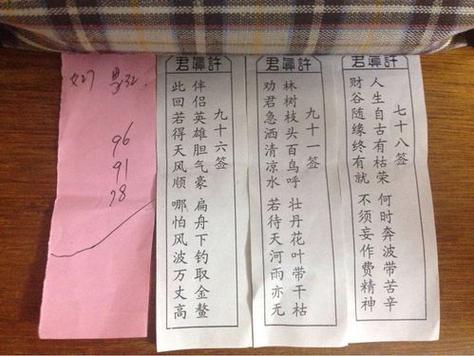 96
91
78
許眞君
九十六签
伴侣英雄胆气豪 扁舟下钓取金鳌
此回若得天风顺 哪怕风波万丈高
許眞君
九十一签
林树枝头百鸟呼 壮丹花叶带干枯
劝君急洒清凉水 若待天河雨亦无
許眞君
七十八签
人生自古有枯荣 何时奔波带苦辛
财谷随缘终有就 不须妄作费精神